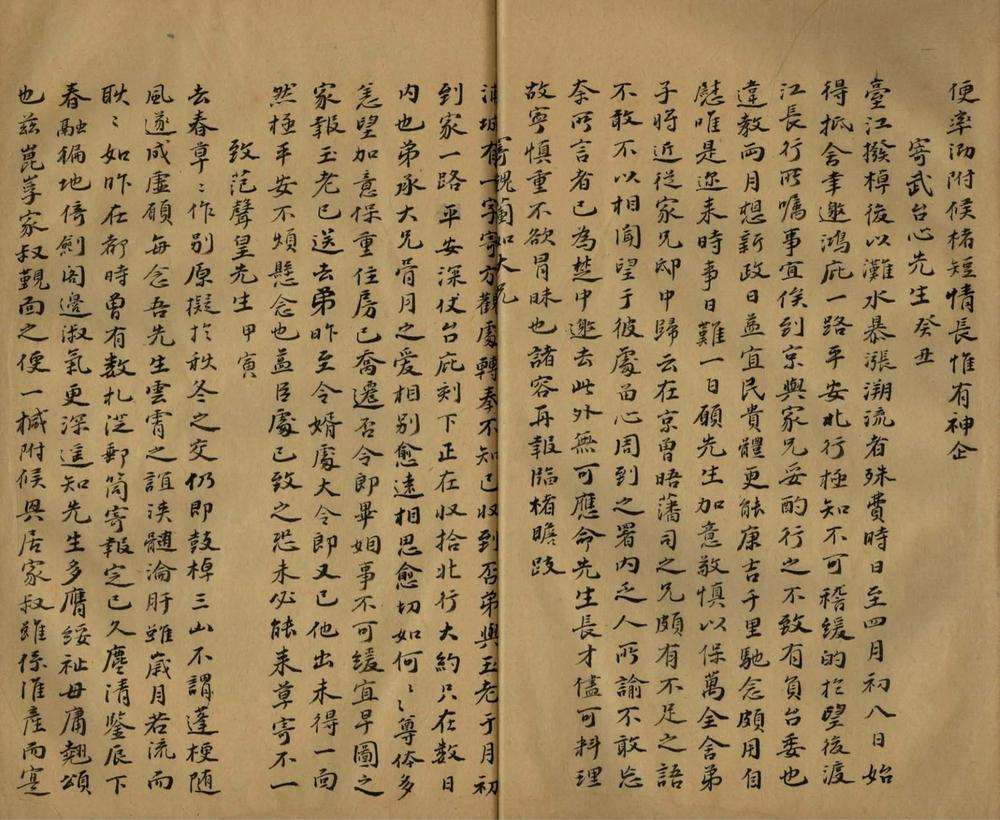 便率泐附候楮短情長惟有神企
寄武台心先生 癸丑
臺江撥棹後以灘水暴漲溯流者殊費時日至四月初八日始
得抵舍幸邀鴻庇一路平安北行極知不可稽緩的於望後渡
江長行所囑事宜俟到京與家兄妥酌行之不致有負台委也
違教兩月想新政日益宜民貴體更能康吉千里馳念頗用自
慰唯是迩来時事日難一日願先生加意敬慎以保萬全舍弟
子將近從家兄邸中歸云在京曾晤藩司之兄頗有不足之語
不敢不以相聞望于彼處留心周到之署内乏人所諭不敢忘
奈所言者已為楚中邀去此外無可應命先生長才儘可料理
故寧慎重不欲冒昧也諸容再報臨楮瞻跂
寄槐蘭口大兄
浦城有一字寄方觀處轉奉不知已收到否弟與玉老于月初
到家一路平安深仗台庇刻下正在收拾北行大約只在數日
内也弟承大兄骨月之愛相別愈遠相思愈切如何〻尊体多
恙望加意保重住房已喬遷否令郎畢姻事不可緩宜早圖之
家報玉老已送去弟昨至令婿處大令郎又已他出未得一面
然極平安不煩懸念也益臣處已致之恐未必能来草寄不一
致范聲皇先生 甲寅
去春草〻作別原擬於秋冬之交仍即鼓棹三山不謂蓬梗隨
風遂成虛願每念吾先生雲霄之誼浹髓淪肝雖歲月若流而
耿〻如昨在都時曾有数札泛郵筒寄報定已久塵清鑒辰下
春融徧地倚劍閣邊淑氣更深遥知先生多膺綏祉毋庸翹頌
也兹崑峯家叔覲面之便一椷附候興居家叔雖係淮產而寔